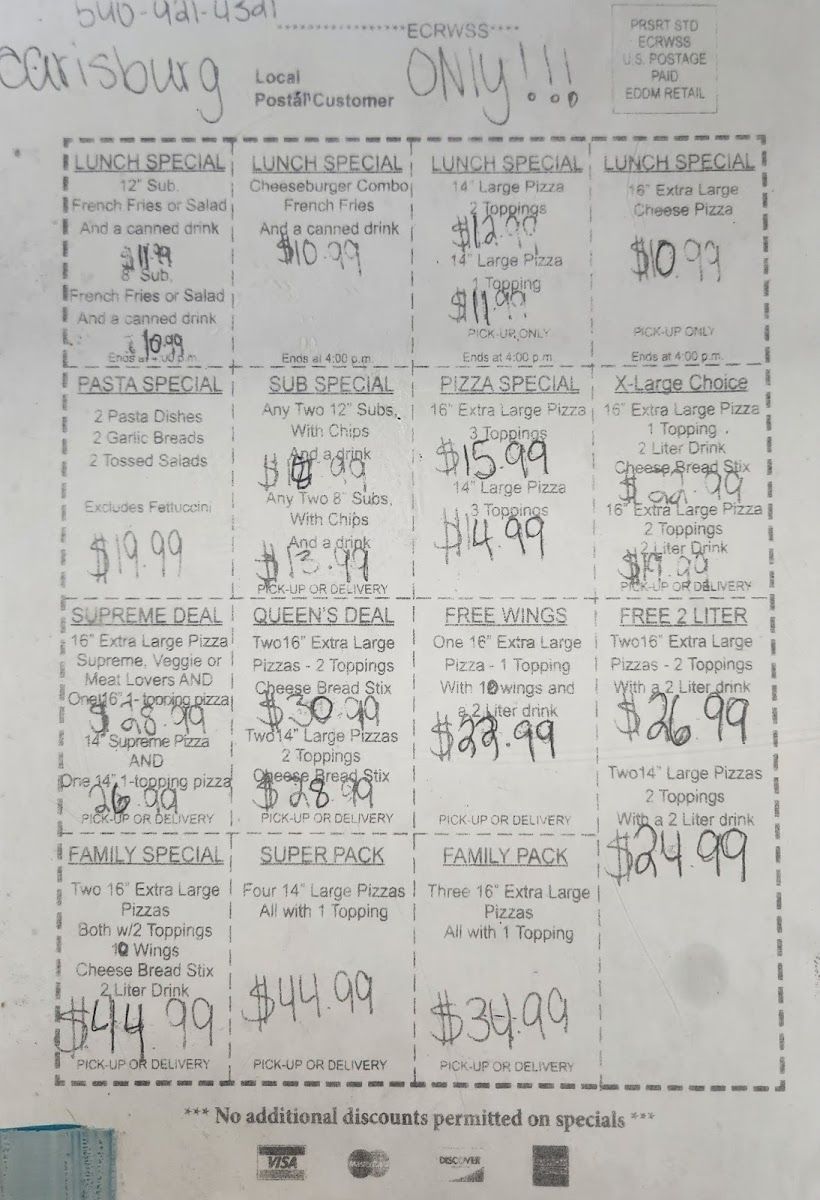 540-421-4321
ECRWSS
PRSRT STD
ECRWSS
U.S. POSTAGE
PAID
EDDM RETAIL
earisburg
Local
Postal Customer
ONLY!!!
LUNCH SPECIAL
12" Sub,
French Fries or Salad
And a canned drink
$11.99
8" Sub,
French Fries or Salad
And a canned drink
10.99
Ends at 4:00 p.m.
LUNCH SPECIAL
Cheeseburger Combo
French Fries
And a canned drink
$10.99
Ends at 4:00 p.m.
LUNCH SPECIAL
14" Large Pizza
2 Toppings
$12.99
14" Large Pizza
1 Topping
$11.99
PICK-UP ONLY
Ends at 4:00 p.m.
LUNCH SPECIAL
16" Extra Large
Cheese Pizza
$10.99
PICK-UP ONLY
Ends at 4:00 p.m.
PASTA SPECIAL
2 Pasta Dishes
2 Garlic Breads
2 Tossed Salads
Excludes Fettuccini
$19.99
SUB SPECIAL
Any Two 12" Subs,
With Chips
And a drink
Any Two 8" Subs,
With Chips
And a drink
$13.99
PICK-UP OR DELIVERY
PIZZA SPECIAL
16" Extra Large Pizza
3 Toppings
$15.99
14" Large Pizza
3 Toppings
$14.99
X-Large Choice
16" Extra Large Pizza
1 Topping
2 Liter Drink
Cheese Bread Stix
$22.99
16" Extra Large Pizza
2 Toppings
2 Liter Drink
$19.99
PICK-UP OR DELIVERY
SUPREME DEAL
16" Extra Large Pizza
Supreme, Veggie or
Meat Lovers AND
One 16" 1-topping pizza
$28.99
14" Supreme Pizza
AND
One 14" 1-topping pizza
26.99
PICK-UP OR DELIVERY
QUEEN'S DEAL
Two16" Extra Large
Pizzas - 2 Toppings
Cheese Bread Stix
$30.99
Two14" Large Pizzas
2 Toppings
Cheese Bread Stix
$28.99
PICK-UP OR DELIVERY
FREE WINGS
One 16" Extra Large
Pizza - 1 Topping
With 10 wings and
a 2 Liter drink
$22.99
PICK-UP OR DELIVERY
FREE 2 LITER
Two16" Extra Large
Pizzas - 2 Toppings
With a 2 Liter drink
$26.99
Two14" Large Pizzas
2 Toppings
With a 2 Liter drink
$24.99
FAMILY SPECIAL
Two 16" Extra Large
Pizzas
Both w/2 Toppings
10 Wings
Cheese Bread Stix
2 Liter Drink
$44.99
PICK-UP OR DELIVERY
SUPER PACK
Four 14" Large Pizzas
All with 1 Topping
$44.99
PICK-UP OR DELIVERY
FAMILY PACK
Three 16" Extra Large
Pizzas
All with 1 Topping
$34.99
PICK-UP OR DELIVERY
*** No additional discounts permitted on specials ***
VISA
DISCOVER